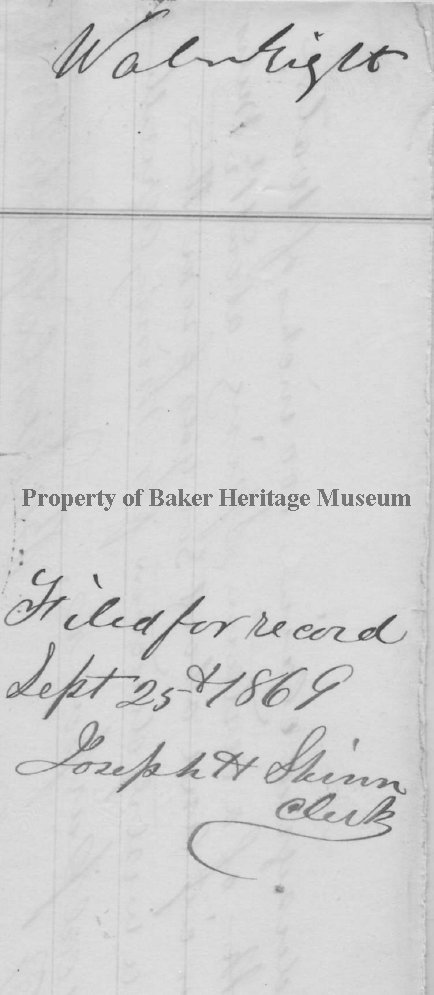 Water Right
Property of Baker Heritage Museum
Filed for record
Sept 25th 1869
Joseph H Shinn
Clerk